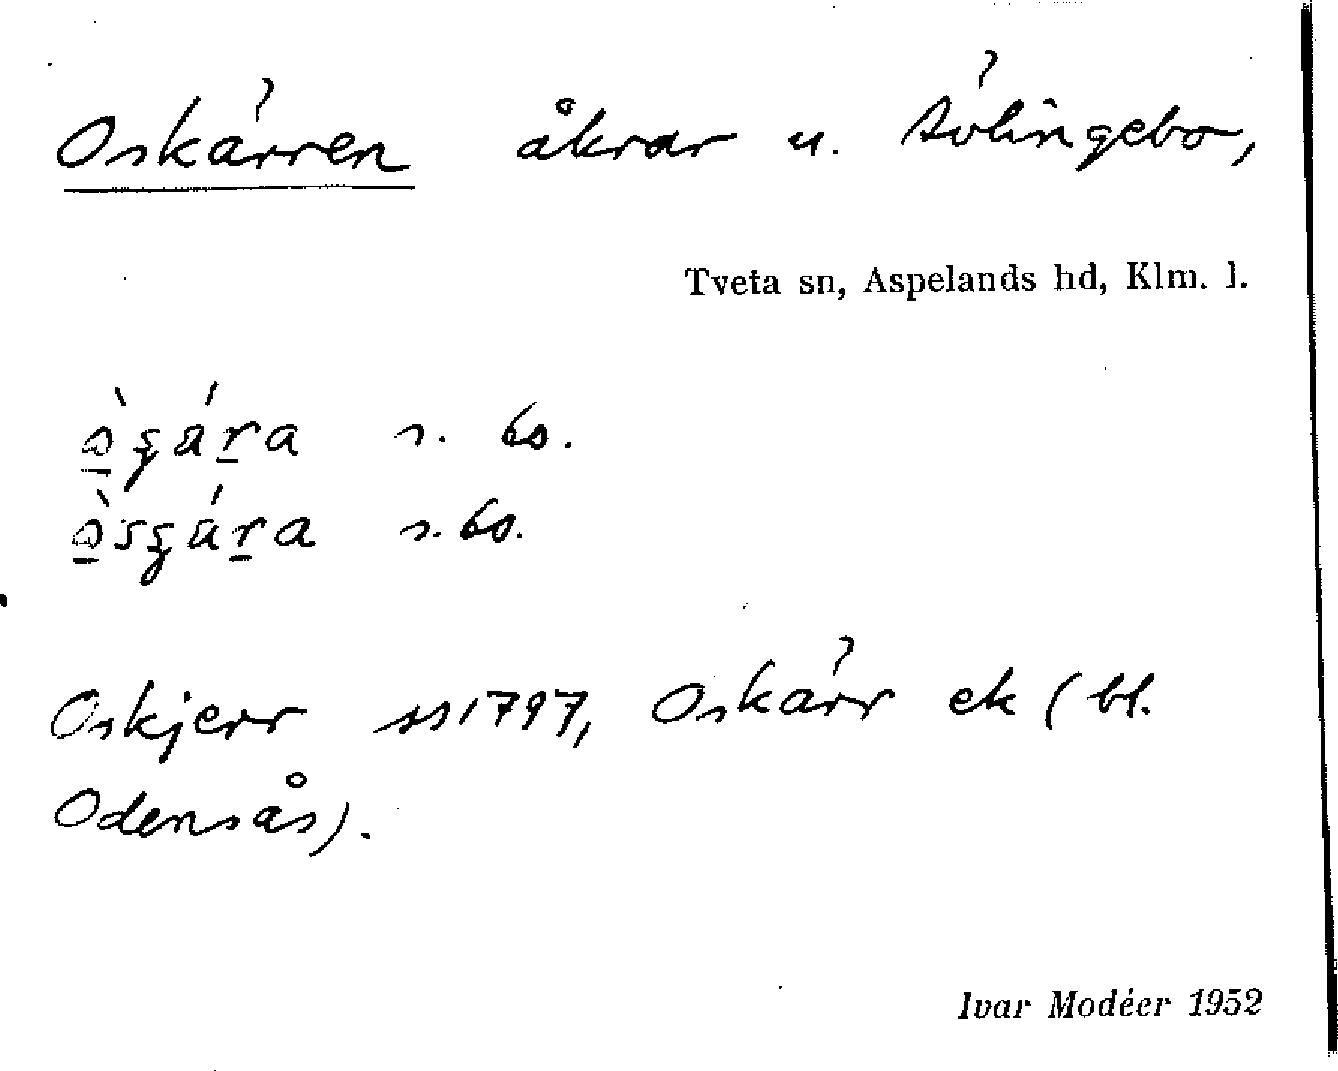 Oskärren åkrar u. Sölingebo,
Tveta sn, Aspelands hd, Klm. l.
s. bs.
s. bs.
Oskjerr ss 1797, Oskärr ek (bl.
Odensås).
Ivar Modéer 1952